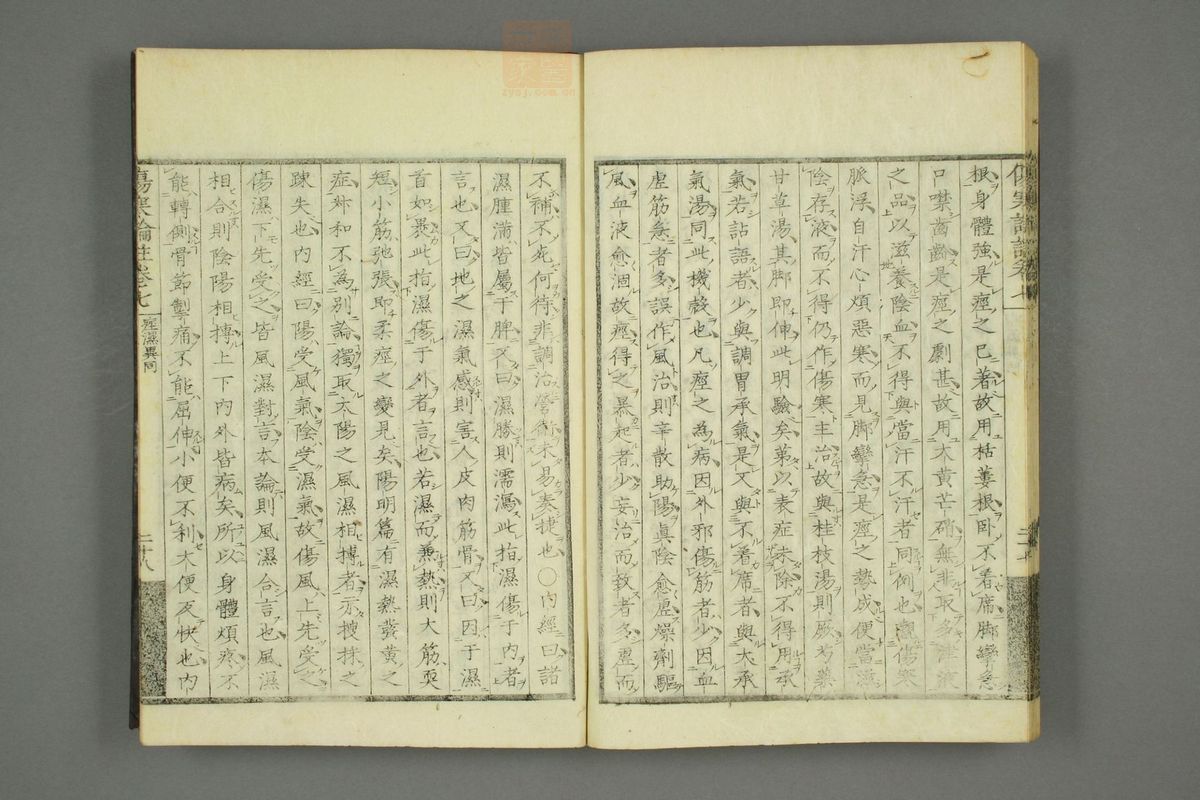 根身體強是痙之已著故用栝蔞根臥不着席脚攣急
口噤齒齘是痙之劇甚故用大黃芒硝無非取多津液
之品以滋養陰血不得與當汗不汗者同例也觀傷寒
脈浮自汗心煩惡寒而見脚攣急是痙之勢成便當滋
陰存液而不得仍作傷寒主治故與桂枝湯則厥与藥
甘草湯其脚即伸此明驗矣第以表症未除不得用承
氣若詀語者少與調胃承氣是又與不着席者與大承
氣湯同此機彀也凡痙之為病因外邪傷筋者少因血
虛筋急者多誤作風治則辛散助陽眞陰愈虛燥劑驅
風血液愈涸故痙得之暴起者少妄治而致者多虛而
傷寒論註卷七
二十七
不補不死何待非調治營衛未易奏捷也〇內經曰諸
濕腫滿皆屬于脾又曰濕勝則濡瀉此指濕傷于内者
言也又曰地之濕氣感則害人皮肉筋骨又曰因于濕
首如裹此指濕傷于外者言也若濕而兼熱則大筋耎
短小筋弛張即柔痙之變見矣陽明篇有濕熱發黃之
症叅和不為別論獨取太陽之風濕相搏者示搜抹之
踈失也內經曰陽受風氣陰受濕氣故傷風上先受之
傷濕下先受之皆風濕對言本論則風濕合言也風濕
相合則陰陽相搏上下內外皆病矣所以身體煩疼不
能轉側骨節掣痛不能屈伸小便不利大便反快也內
傷寒論註卷七
痙濕異同
二十八